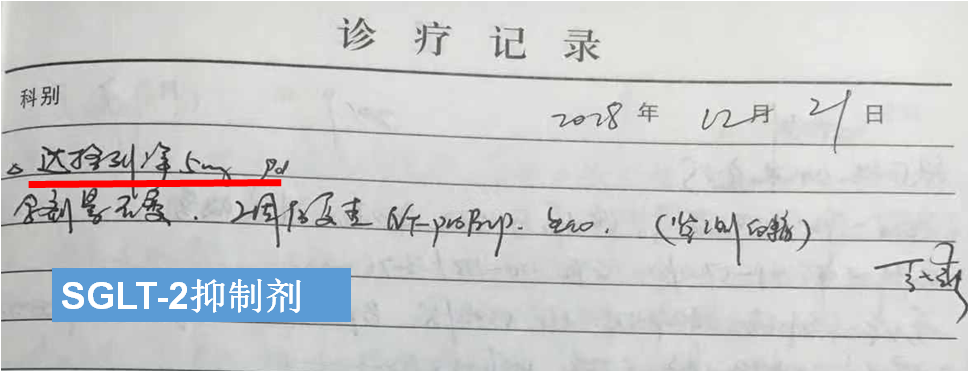 诊疗记录
科别
2028年 12月 21日
△ 达格列净 5mg qd
余剂量不变. 2周后复查 NT-proBnp.
SGLT-2抑制剂